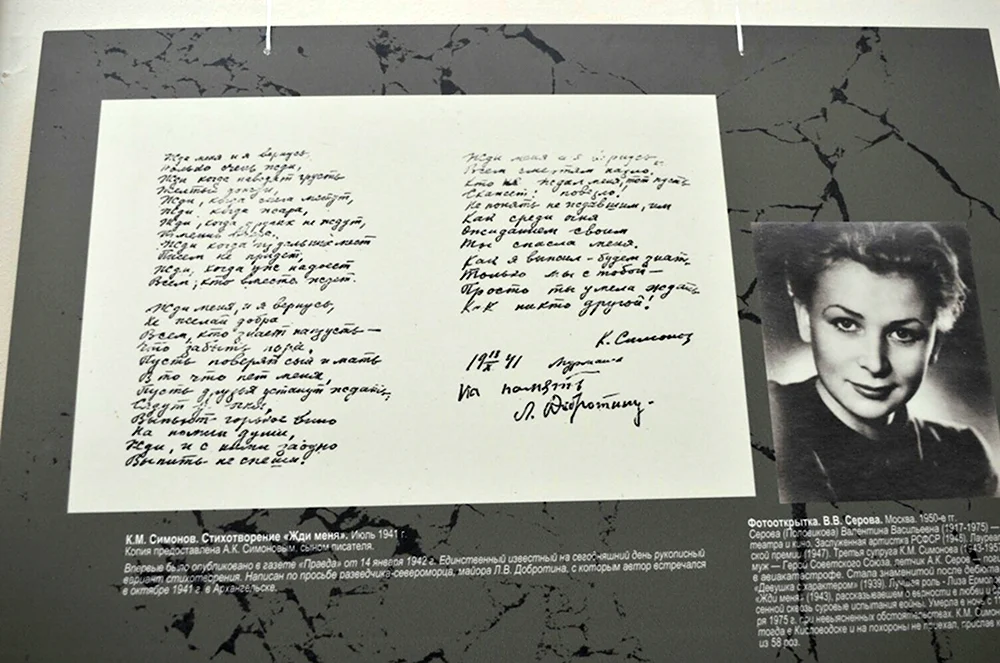 Жди меня и я вернусь,
только очень жди,
Жди когда наводят грусть
Желтые дожди,
Жди, когда снега метут,
Жди когда жара,
Жди, когда других не ждут,
Жди когда из дальних мест
Писем не придет,
Жди, когда уж надоест
Всем, кто вместе ждет.
Жди меня, и я вернусь,
Не желай добра
Всем, кто знает наизусть —
Что забыть пора,
Пусть поверят сын и мать
В то что нет меня,
Пусть друзья устанут ждать,
Сядут у огня,
Выпьют горькое вино
На помин души,
Жди, и с ними заодно
Выпить не спеши!
Жди меня и я вернусь
Всем смертям назло.
Кто не ждал меня, тот пусть
Скажет: повезло.
Не понять не ждавшим, им
Как среди огня
Ожиданием своим
Ты спасла меня.
Как я выжил - будем знать
Только мы с тобой —
Просто ты умела ждать
Как никто другой!
К. Симонов
19 13/X 41 Мурманск
На память
Л. Добротину.
К.М. Симонов. Стихотворение «Жди меня». Июль 1941 г.
Копия предоставлена А.К. Симоновым, сыном писателя.
Впервые было опубликовано в газете «Правда» от 14 января 1942 г. Единственный известный на сегодняшний день рукописный
вариант стихотворения. Написан по просьбе разведчика-североморца, майора Л.В. Добротина, с которым автор встречался
в октябре 1941 г. в Архангельске.
Фотооткрытка. В.В. Серова. Москва. 1950-е гг.
Серова (Половикова) Валентина Васильевна (1917-1975) —
театра и кино. Заслуженная артистка РСФСР (1946). Лауреат
ской премии (1947). Третья супруга К.М. Симонова (1943-195
муж — Герой Советского Союза, летчик А.К. Серов, по
в авиакатастрофе. Стала знаменитой после фильма
«Девушка с характером» (1939). Лучшая роль - Лиза Ермол
«Жди меня» (1943), рассказывшем о верности и любви
сенной сквозь суровые испытания войны. Умерла в ночь с 1
ря 1975 г. при невыясненных обстоятельствах. К.М. Симон
тогда в Кисловодске и на похороны не приехал, прислав
из 58 роз.